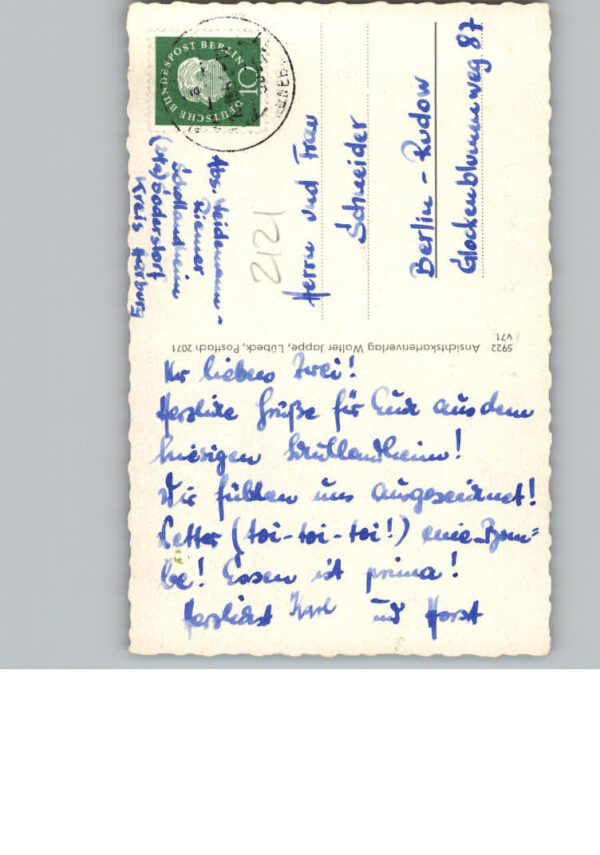 Ihr lieben Zwei!
Herzliche Grüße für Euch aus dem
hiesigen Schullandheim!
Wir fühlen uns ausgezeichnet!
Wetter (toi-toi-toi!) eine Bom=
be! Essen ist prima!
Herzlichst Karl und Horst
Abs. Heidemann-
Riemer
Schullandheim
(24a) Soderstorf
Kreis Harburg
2121
Herrn und Frau
Schneider
Berlin-Rudow
Glockenblumenweg 87
DEUTSCHE BUNDESPOST BERLIN
10
5922 Ansichtskartenverlag Walter Jappe, Lübeck, Postfach 2071
V71